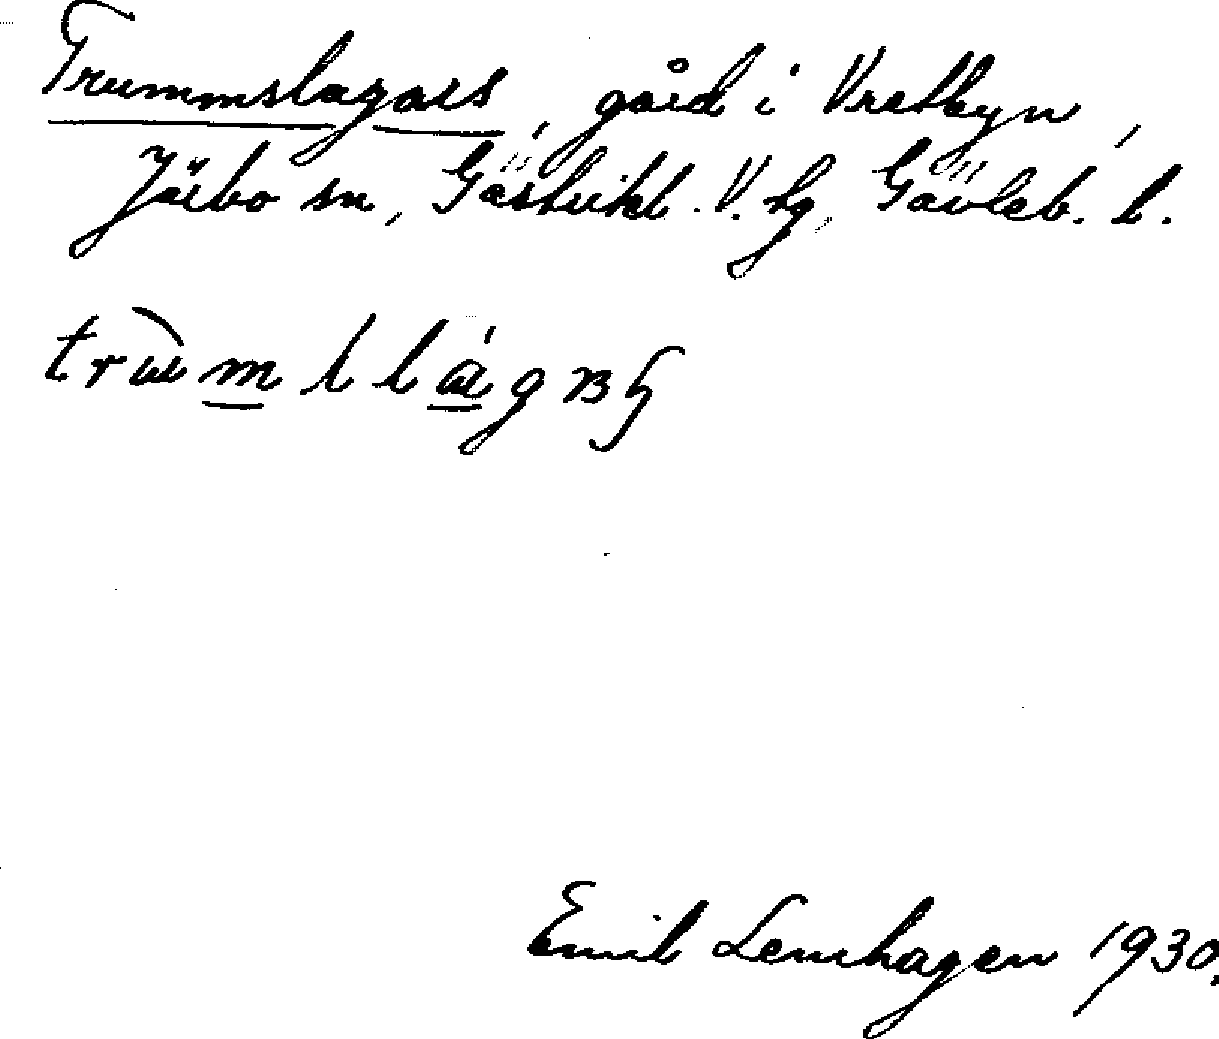 Trummslagars, gård i Vretbyn,
Järbo sn, Gästrikl. V. hg, Gävleb. l.
Emil Lenhagen 1930.